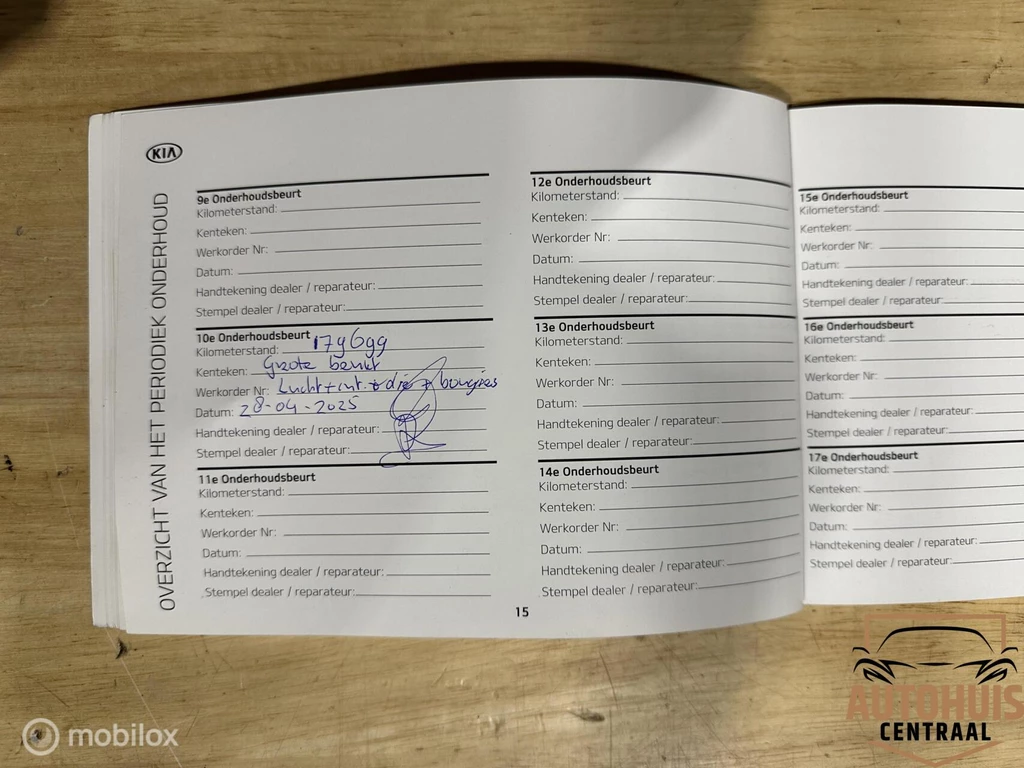 KIA
OVERZICHT VAN HET PERIODIEK ONDERHOUD
9e Onderhoudsbeurt
Kilometerstand:
Kenteken:
Werkorder Nr:
Datum:
Handtekening dealer / reparateur:
Stempel dealer / reparateur:
10e Onderhoudsbeurt
Kilometerstand: 179699
Kenteken: Grote beurt
Werkorder Nr: Lucht + int. + olie + bougies
Datum: 28-04-2025
Handtekening dealer / reparateur:
Stempel dealer / reparateur:
11e Onderhoudsbeurt
Kilometerstand:
Kenteken:
Werkorder Nr:
Datum:
Handtekening dealer / reparateur:
Stempel dealer / reparateur:
12e Onderhoudsbeurt
Kilometerstand:
Kenteken:
Werkorder Nr:
Datum:
Handtekening dealer / reparateur:
Stempel dealer / reparateur:
13e Onderhoudsbeurt
Kilometerstand:
Kenteken:
Werkorder Nr:
Datum:
Handtekening dealer / reparateur:
Stempel dealer / reparateur:
14e Onderhoudsbeurt
Kilometerstand:
Kenteken:
Werkorder Nr:
Datum:
Handtekening dealer / reparateur:
Stempel dealer / reparateur:
15
15e Onderhoudsbeurt
Kilometerstand:
Kenteken:
Werkorder Nr:
Datum:
Handtekening dealer / reparateur:
Stempel dealer / reparateur:
16e Onderhoudsbeurt
Kilometerstand:
Kenteken:
Werkorder Nr:
Datum:
Handtekening dealer / reparateur:
Stempel dealer / reparateur:
17e Onderhoudsbeurt
Kilometerstand:
Kenteken:
Werkorder Nr:
Datum:
Handtekening dealer / reparateur:
Stempel dealer / reparateur:
mobilox
AUTOHUIS
CENTRAAL